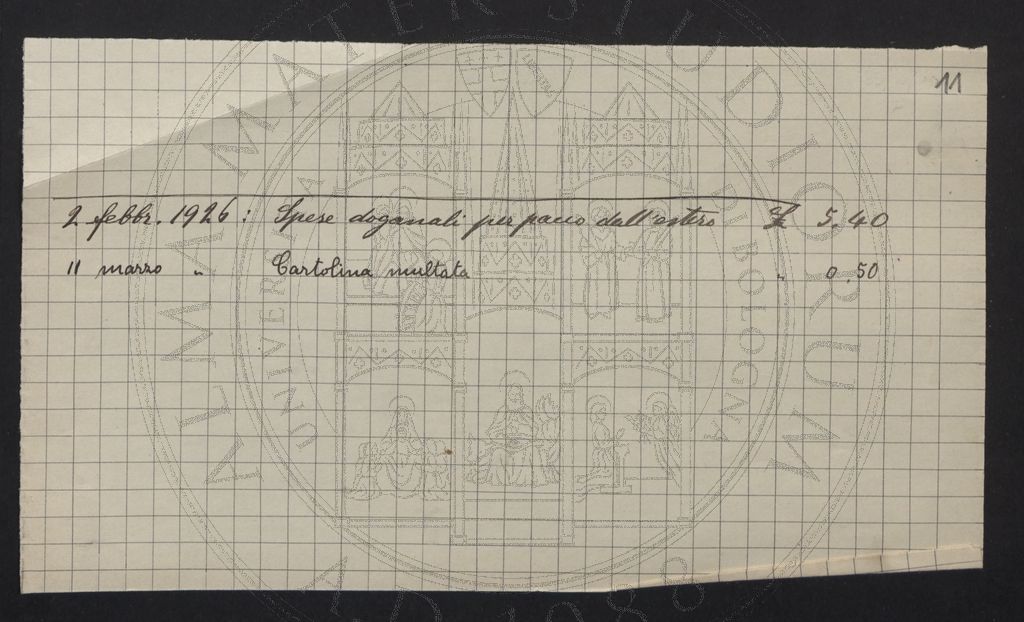 11
2 febbr. 1926 : Spese doganali per pacco dall'estero £ 5.40
11 marzo " Cartolina multata " 0.50
ALMA MATER STUDIORUM
UNIVERSITÀ BOLOGNA
A.D. 1088